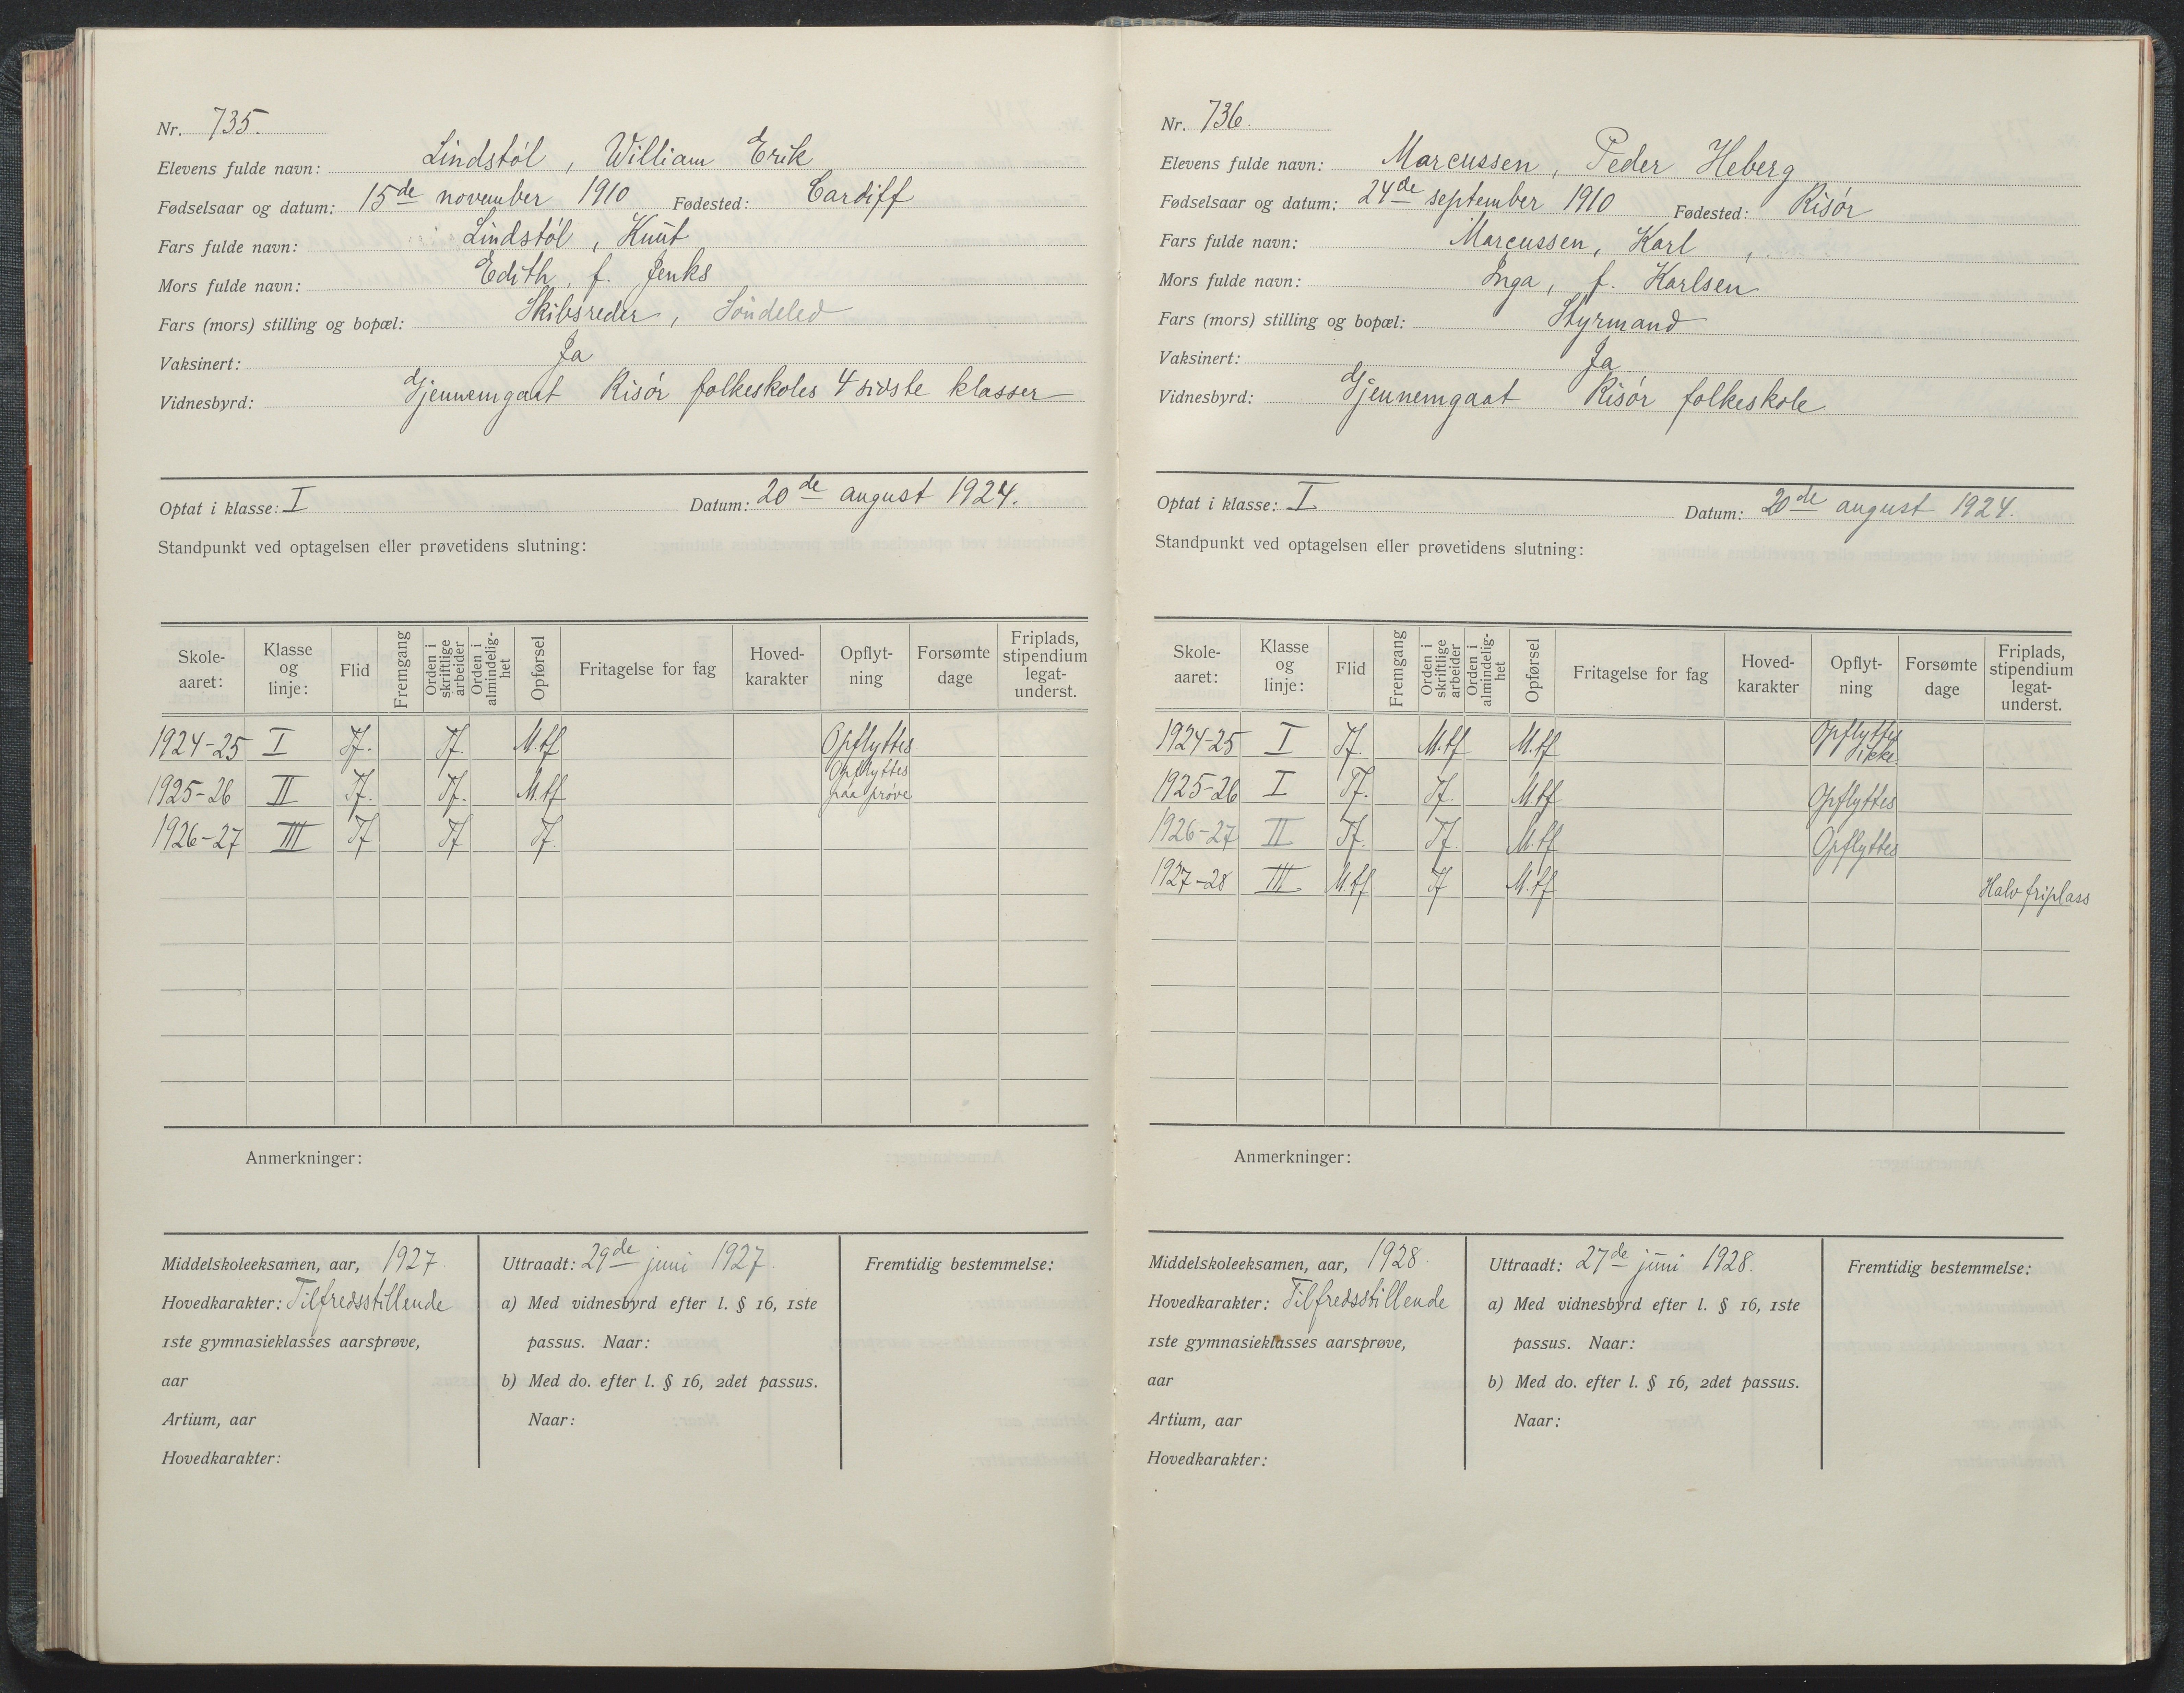 Nr. 735.
Elevens fulde navn: Lindstøl, William Erik
Fødselsaar og datum: 15de november 1910 Fødested: Cardiff
Fars fulde navn: Lindstøl, Knut
Mors fulde navn: Edith, f. Jenks
Fars (mors) stilling og bopæl: Skibsreder, Søndeled
Vaksinert: Ja
Vidnesbyrd: Gjennemgaat Risør folkeskoles 4 sidste klasser
Optat i klasse: I Datum: 20de august 1924.
Standpunkt ved optagelsen eller prøvetidens slutning:
Skole-aaret: Klasse og linje: Flid Fremgang Orden i skriftlige arbeider Orden i almindelig-het Opførsel Fritagelse for fag Hoved-karakter Opflyt-ning Forsømte dage Friplads, stipendium legat-underst.
1924-25 I Tf. Tf. M.tf Opflyttes
1925-26 II Tf. Tf. M.tf Opflyttes paa prøve
1926-27 III Tf Tf Tf.
Anmerkninger:
Middelskoleeksamen, aar, 1927.
Hovedkarakter: Tilfredsstillende
1ste gymnasieklasses aarsprøve,
aar
Artium, aar
Hovedkarakter:
Uttraadt: 29de juni 1927.
a) Med vidnesbyrd efter l. § 16, 1ste
passus. Naar:
b) Med do. efter l. § 16, 2det passus.
Naar:
Fremtidig bestemmelse:
Nr. 736.
Elevens fulde navn: Marcussen, Peder Heberg
Fødselsaar og datum: 24de september 1910 Fødested: Risør
Fars fulde navn: Marcussen, Karl,
Mors fulde navn: Inga, f. Karlsen
Fars (mors) stilling og bopæl: Styrmand
Vaksinert: Ja
Vidnesbyrd: Gjennemgaat Risør folkeskole
Optat i klasse: I Datum: 20de august 1924.
Standpunkt ved optagelsen eller prøvetidens slutning:
Skole-aaret: Klasse og linje: Flid Fremgang Orden i skriftlige arbeider Orden i almindelig-het Opførsel Fritagelse for fag Hoved-karakter Opflyt-ning Forsømte dage Friplads, stipendium legat-underst.
1924-25 I Tf. M.tf M.tf Opflyttes ikke
1925-26 I Tf. Tf. M.tf Opflyttes
1926-27 II Tf. Tf. M.tf Opflyttes
1927-28 III M.tf Tf M.tf Halv friplass
Anmerkninger:
Middelskoleeksamen, aar, 1928.
Hovedkarakter: Tilfredsstillende
1ste gymnasieklasses aarsprøve,
aar
Artium, aar
Hovedkarakter:
Uttraadt: 27de juni 1928.
a) Med vidnesbyrd efter l. § 16, 1ste
passus. Naar:
b) Med do. efter l. § 16, 2det passus.
Naar:
Fremtidig bestemmelse: